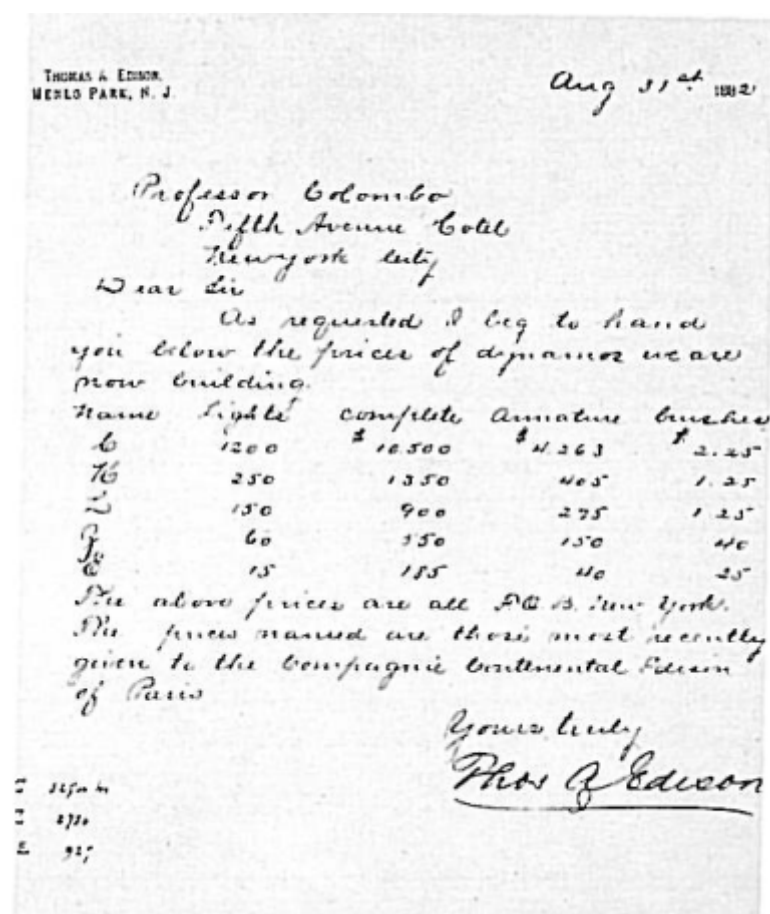 THOMAS A. EDISON,
MENLO PARK, N. J.
Aug 31st 1882
Professor Colombo
Fifth Avenue Hotel
New york City
Dear Sir
As requested I beg to hand
you below the prices of dynamos we are
now building.
Name Lights complete Armature brushes
C 1200 $ 10.500 $ 4.263 $ 2.25
K 250 1350 405 1.25
L 150 900 275 1.25
Z 60 550 150 40
E 15 155 40 25
The above prices are all F.O.B. New York.
The prices named are those most recently
given to the Compagnie Continental Edison
of Paris
Yours truly
Thos A Edison
E 925